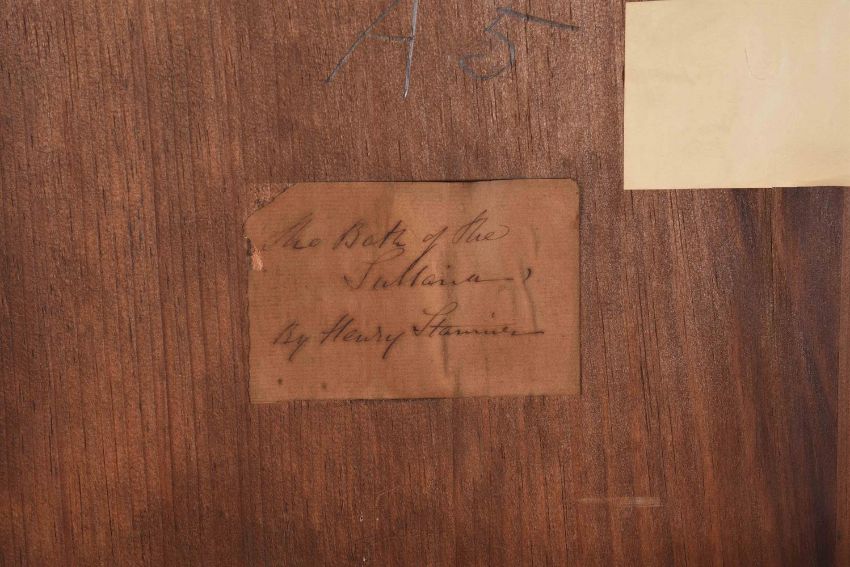 A.5
The Bath of the
Sultana,
By Henry Stanier